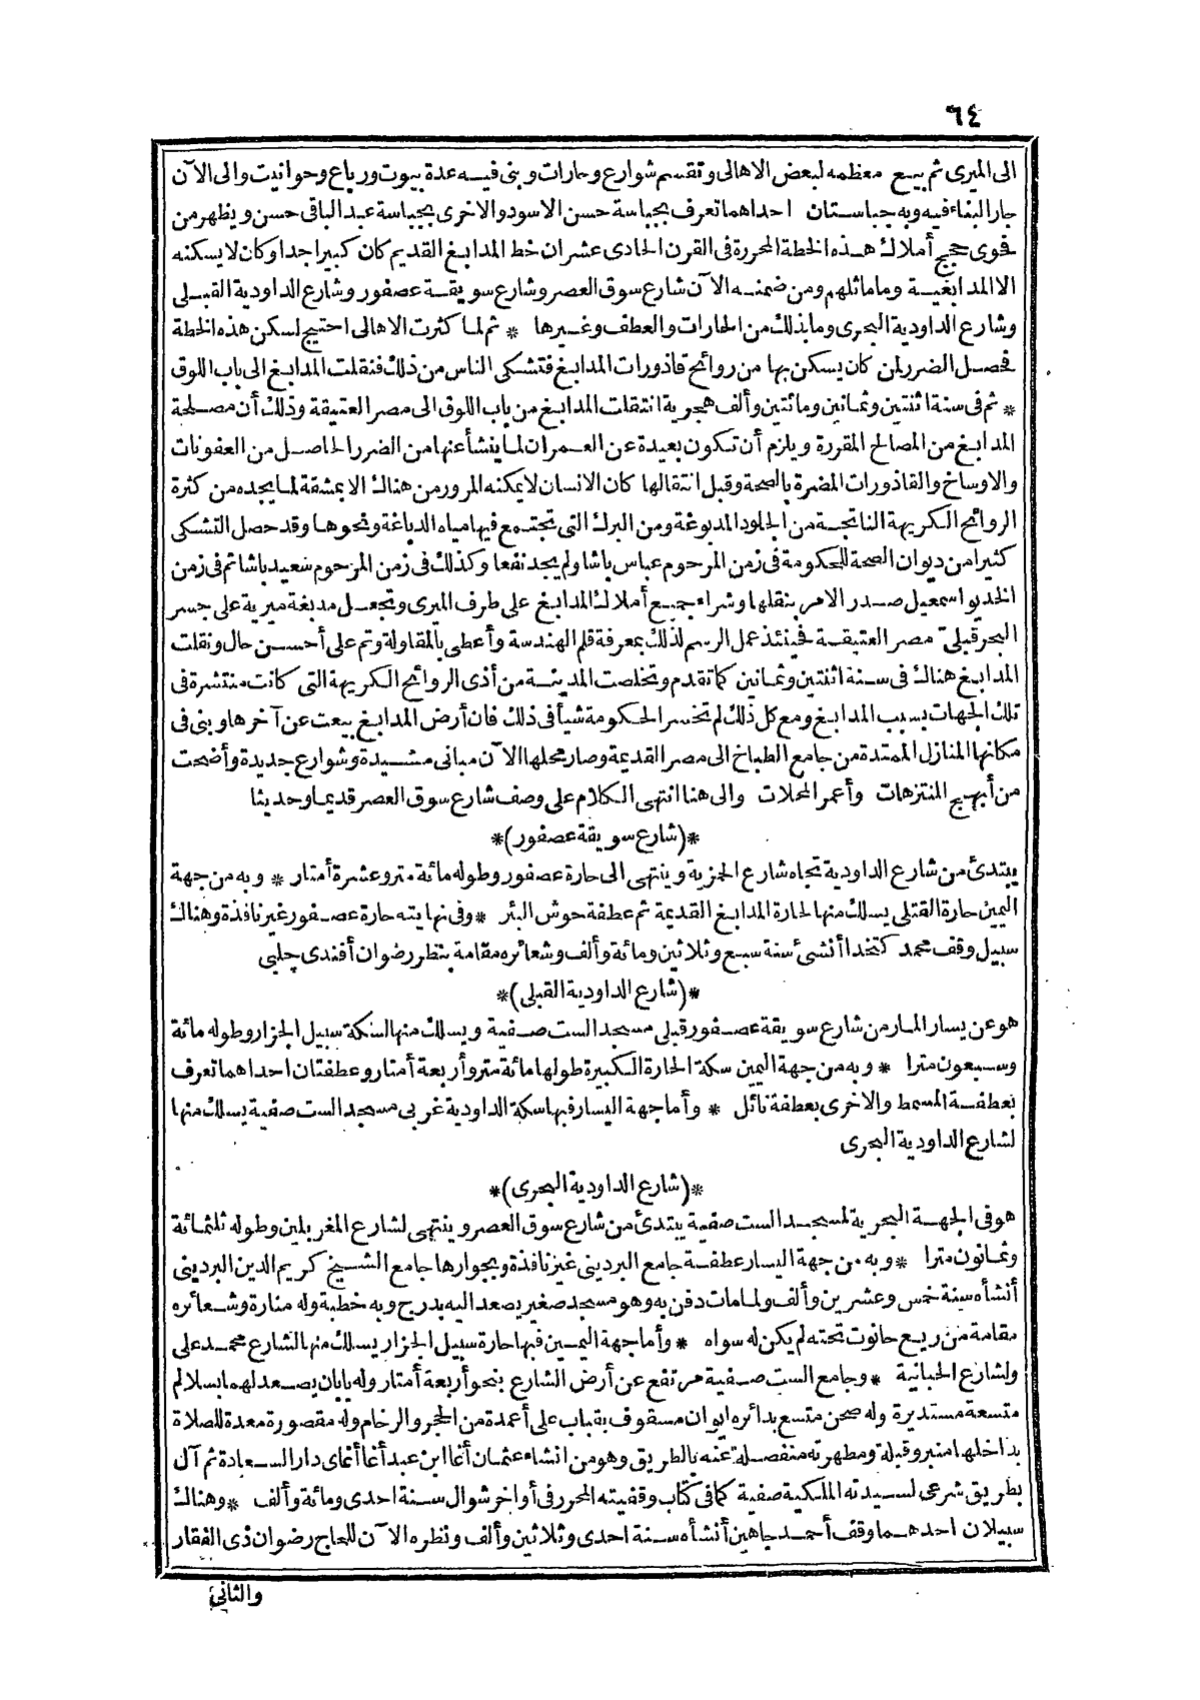 ٦٤
الى الميرى ثم بيع معظمه لبعض الاهالى وتقسم شوارع وحارات وبنى فيه عدة بيوت ورباع وحوانيت والى الآن
جار البناء فيه وبه جباستان احداهما تعرف بجباسة حسن الاسود والاخرى بجباسة عبد الباقى حسن ويظهر من
فحوى حجج أملاك هذه الخطة المحررة فى القرن الحادى عشر ان خط المدابغ القديم كان كبيرا جدا وكان لا يسكنه
الا المدابغية وما ماثلهم ومن ضمنه الآن شارع سوق العصر وشارع سويقة عصفور وشارع الداودية القبلى
وشارع الداودية البحرى وما بذلك من الحارات والعطف وغيرها * ثم لما كثرت الاهالى احتيج لسكن هذه الخطة
فحصل الضرر لمن كان يسكن بها من روائح قاذورات المدابغ فتشكى الناس من ذلك فنقلت المدابغ الى باب اللوق
* ثم فى سنة اثنتين وثمانين ومائتين وألف هجرية انتقلت المدابغ من باب اللوق الى مصر العتيقة وذلك أن مصلحة
المدابغ من المصالح المقررة ويلزم أن تكون بعيدة عن العمران لما ينشأ عنها من الضرر الحاصل من العفونات
والاوساخ والقاذورات المضرة بالصحة وقبل انتقالها كان الانسان لا يمكنه المرور من هناك الا بمشقة لما يجده من كثرة
الروائح الكريهة الناتجة من الجلود المدبوغة ومن البرك التى تجتمع فيها مياه الدباغة ونحوها وقد حصل التشكى
كثيرا من ديوان الصحة للحكومة فى زمن المرحوم عباس باشا ولم يجد نفعا وكذلك فى زمن المرحوم سعيد باشا ثم فى زمن
الخديو اسمعيل صدر الامر بنقلها وشراء جميع أملاك المدابغ على طرف الميرى وتجعل مدبغة ميرية على جسر
البحر قبلى مصر العتيقة فحينئذ عمل الرسم لذلك بمعرفة قلم الهندسة وأعطى بالمقاولة وتم على أحسن حال ونقلت
المدابغ هناك فى سنة اثنتين وثمانين كما تقدم وتخلصت المدينة من أذى الروائح الكريهة التى كانت منتشرة فى
تلك الجهات بسبب المدابغ ومع كل ذلك لم تخسر الحكومة شيأ فى ذلك فان أرض المدابغ بيعت عن آخرها وبنى فى
مكانها المنازل الممتدة من جامع الطباخ الى مصر القديمة وصار محلها الآن مبانى مشيدة وشوارع جديدة وأضحت
من أبهج المنتزهات وأعمر المحلات والى هنا انتهى الكلام على وصف شارع سوق العصر قديما وحديثا
*(شارع سويقة عصفور)*
يبتدئ من شارع الداودية تجاه شارع الحمزية وينتهى الى حارة عصفور وطوله مائة متر وعشرة أمتار * وبه من جهة
اليمين حارة القتلى يسلك منها لحارة المدابغ القديمة ثم عطفة حوش البئر * وفى نهايته حارة عصفور غير نافذة وهناك
سبيل وقف محمد كتخدا أنشئ سنة سبع وثلاثين ومائة وألف وشعائره مقامة بنظر رضوان أفندى چلبى
*(شارع الداودية القبلى)*
هو عن يسار المار من شارع سويقة عصفور قبلى مسجد الست صفية ويسلك منها السكة سبيل الجزار وطوله مائة
وسبعون مترا * وبه من جهة اليمين سكة الحارة الكبيرة طولها مائة متر وأربعة أمتار وعطفتان احداهما تعرف
بعطفة المسمط والاخرى بعطفة نائل * وأما جهة اليسار فبها سكة الداودية غربى مسجد الست صفية يسلك منها
لشارع الداودية البحرى
*(شارع الداودية البحرى)*
هو فى الجهة البحرية لمسجد الست صفية يبتدئ من شارع سوق العصر وينتهى لشارع المغربلين وطوله ثلثمائة
وثمانون مترا * وبه من جهة اليسار عطفة جامع البردينى غير نافذة وبجوارها جامع الشيخ كريم الدين البردينى
أنشأه سنة خمس وعشرين وألف ولما مات دفن به وهو مسجد صغير يصعد اليه بدرج وبه خطبة وله منارة وشعائره
مقامة من ريع حانوت تحته لم يكن له سواه * وأما جهة اليمين فبها حارة سبيل الجزار يسلك منها الشارع محمد على
ولشارع الحبانية * وجامع الست صفية مرتفع عن أرض الشارع بنحو أربعة أمتار وله بابان يصعد لهما بسلالم
متسعة مستديرة وله صحن متسع بدائره ايوان مسقوف بقباب على أعمدة من الحجر والرخام وله مقصورة معدة للصلاة
بداخلها منبر وقبلة ومطهرته منفصلة عنه بالطريق وهو من انشاء عثمان أغا ابن عبد أغا أغاى دار السعادة ثم آل
بطريق شرعى لسيدته الملكية صفية كما فى كتاب وقفيته المحرر فى أواخر شوال سنة احدى ومائة وألف * وهناك
سبيلان احدهما وقف أحمد جاهين أنشأه سنة احدى وثلاثين وألف ونظره الآن للحاج رضوان ذى الفقار
والثانى